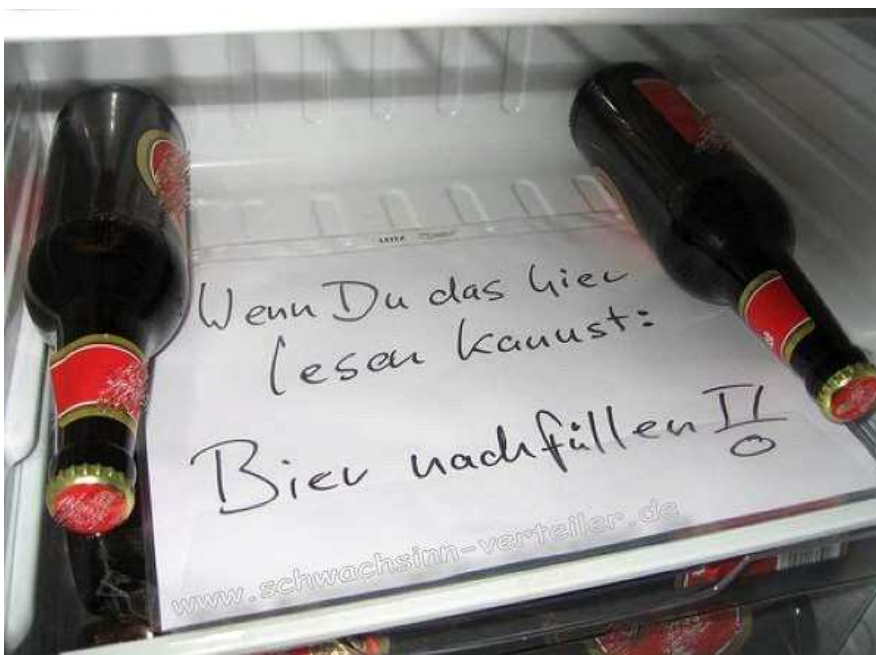 Wenn Du das hier
lesen kannst:
Bier nachfüllen!!
www.schwachsinn-verteiler.de